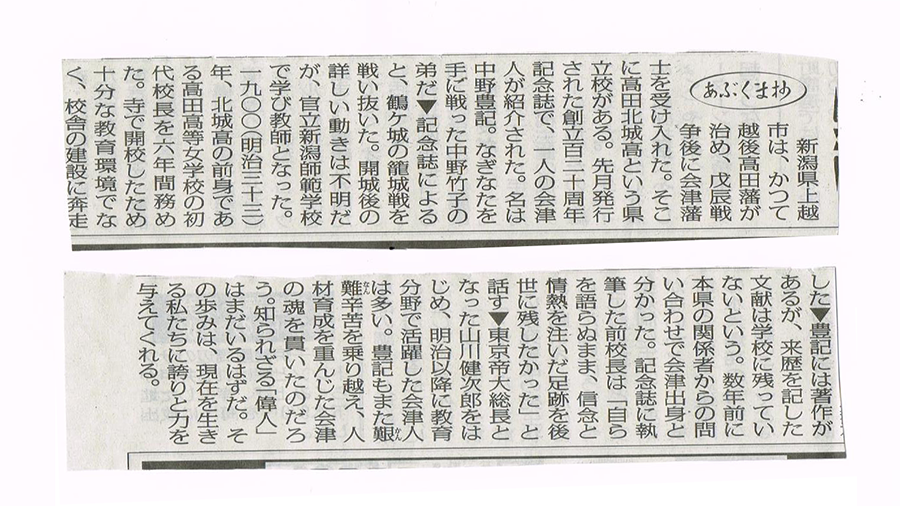 あぶくま抄
新潟県上越
市は、かつて
越後高田藩が
治め、戊辰戦
争後に会津藩
士を受け入れた。そこ
に高田北城高という県
立校がある。先月発行
された創立百二十周年
記念誌で、一人の会津
人が紹介された。名は
中野豊記。なぎなたを
手に戦った中野竹子の
弟だ▼記念誌による
と、鶴ケ城の籠城戦を
戦い抜いた。開城後の
詳しい動きは不明だ
が、官立新潟師範学校
で学び教師となった。
一九〇〇(明治三十三)
年、北城高の前身であ
る高田高等女学校の初
代校長を六年間務め
た。寺で開校したため
十分な教育環境でな
く、校舎の建設に奔走
した▼豊記には著作が
あるが、来歴を記した
文献は学校に残ってい
ないという。数年前に
本県の関係者からの問
い合わせで会津出身と
分かった。記念誌に執
筆した前校長は「自ら
を語らぬまま、信念と
情熱を注いだ足跡を後
世に残したかった」と
話す▼東京帝大総長と
なった山川健次郎をは
じめ、明治以降に教育
分野で活躍した会津人
は多い。豊記もまた艱
難辛苦を乗り越え、人
材育成を重んじた会津
の魂を貫いたのだろ
う。知られざる「偉人」
はまだいるはずだ。そ
の歩みは、現在を生き
る私たちに誇りと力を
与えてくれる。